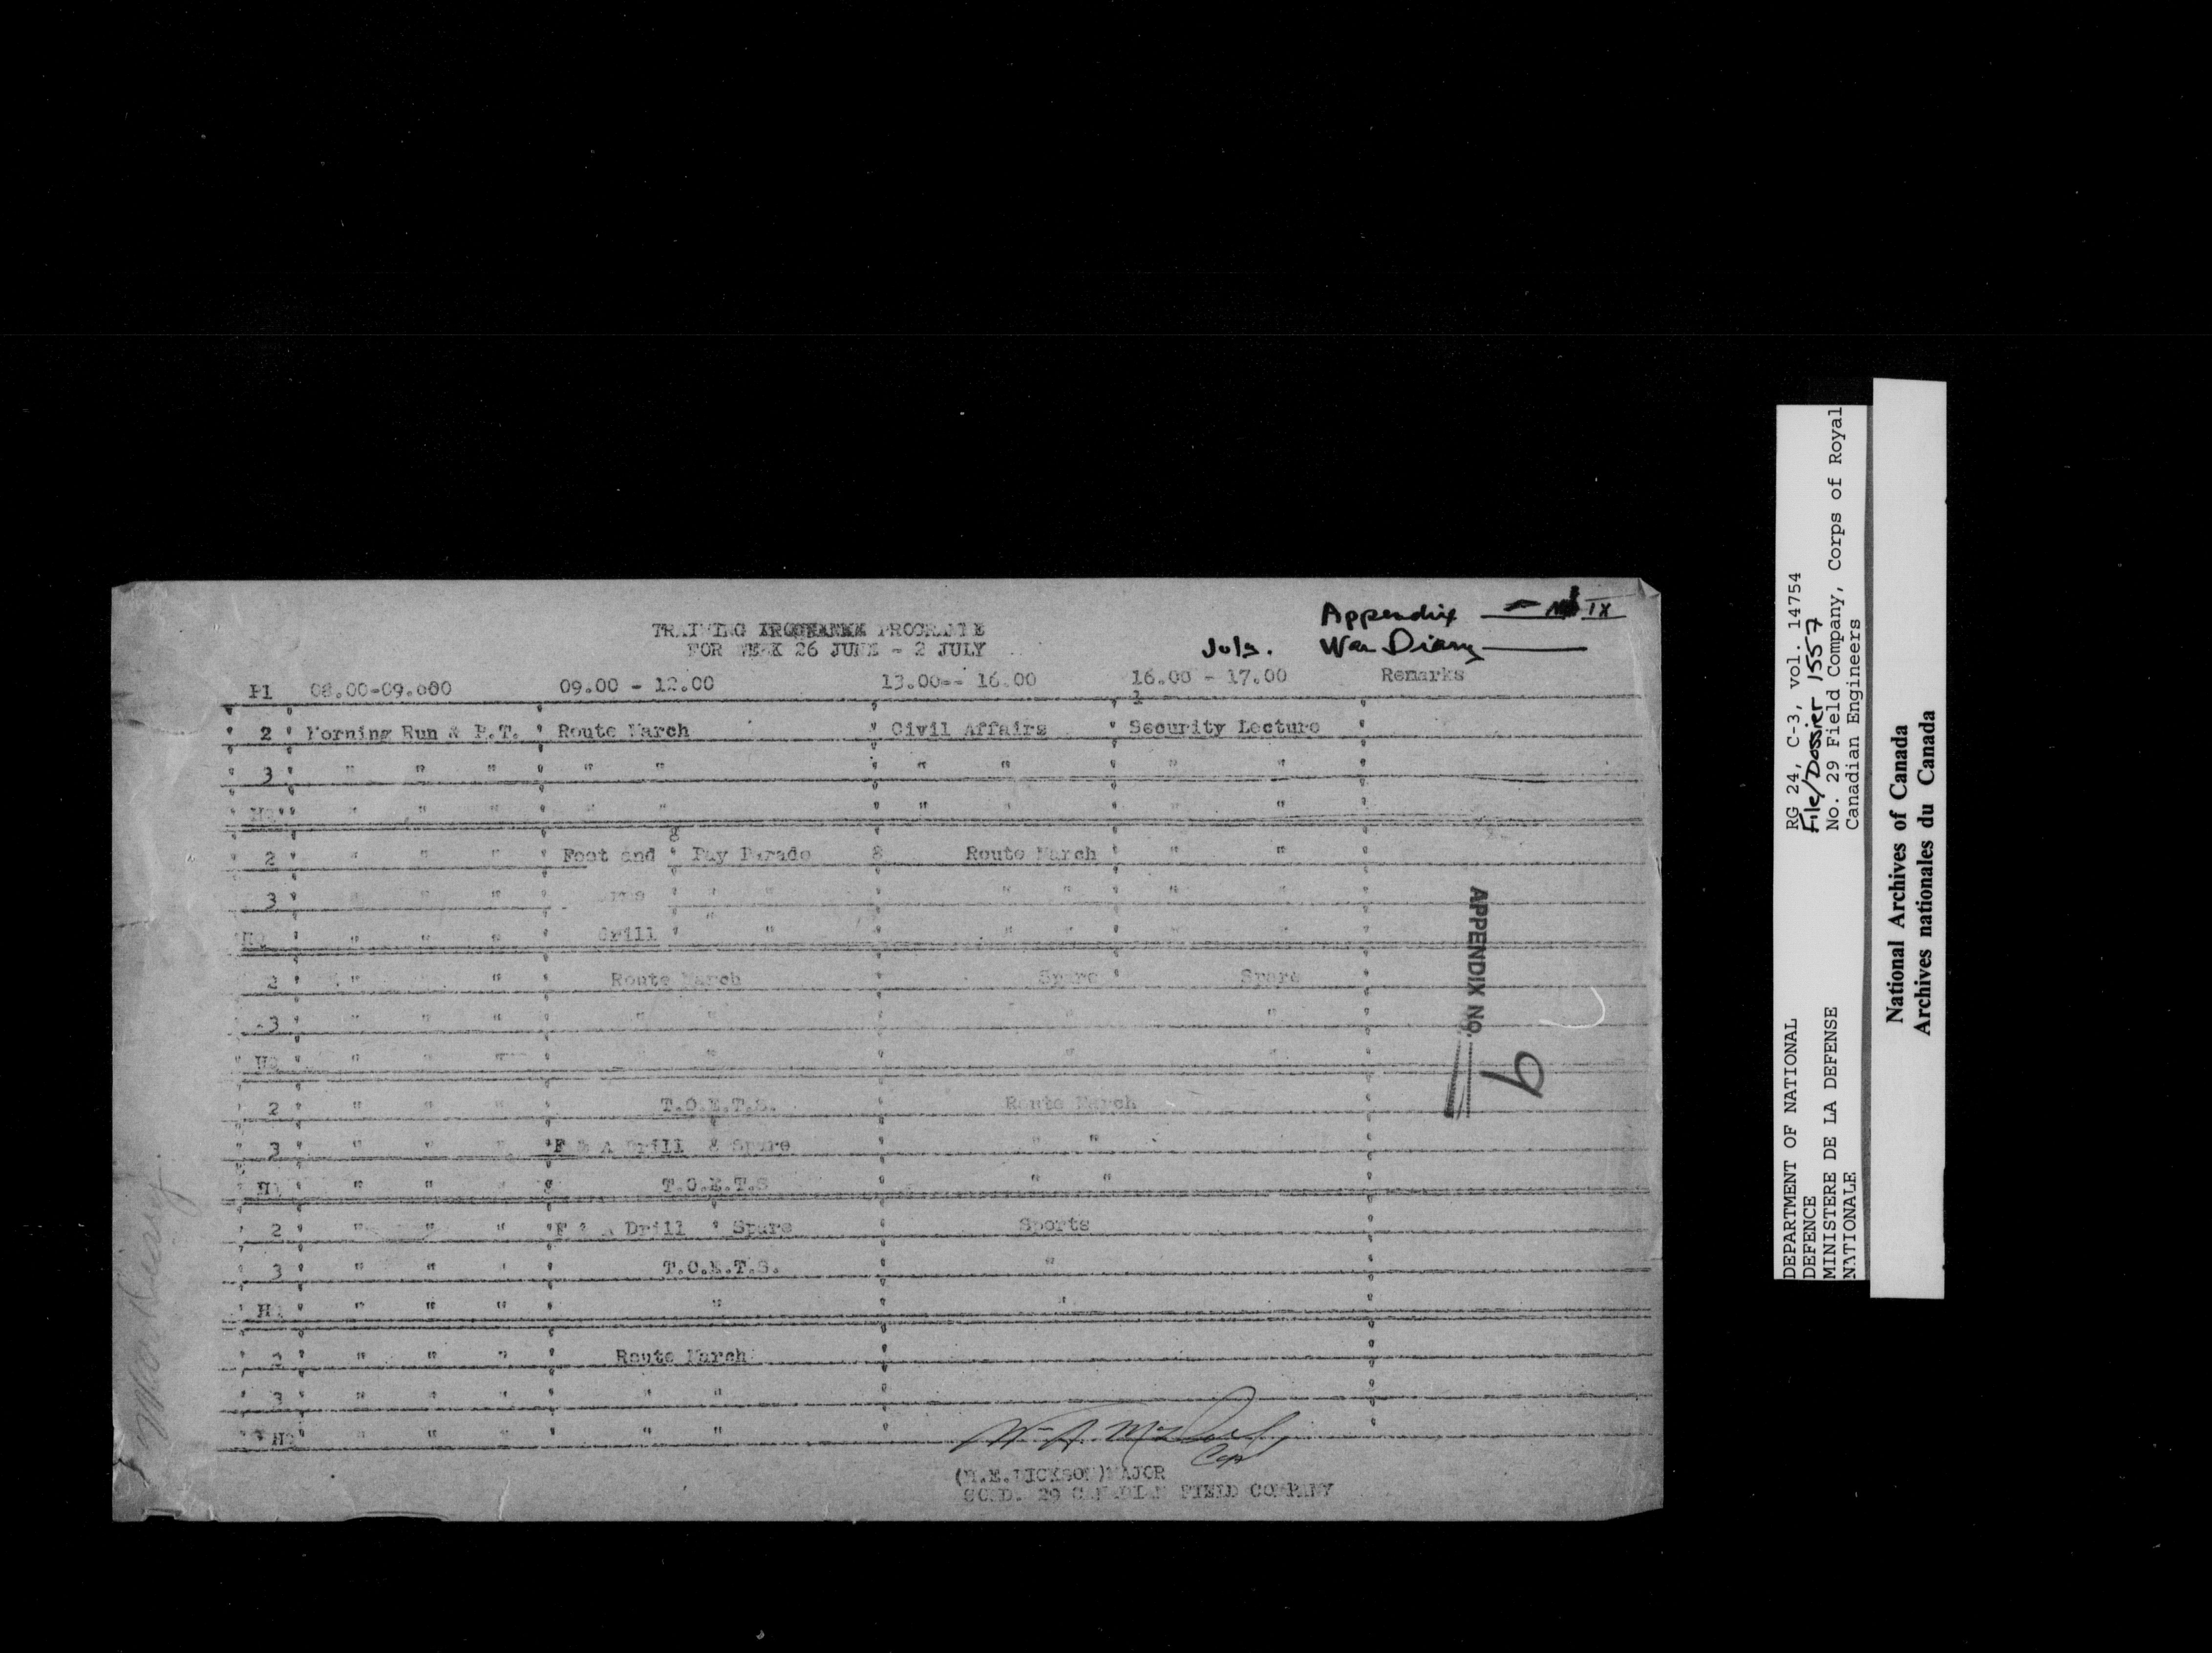 Appendix - No IX
July. War Diary
TRAINING PROGRAMME
FOR WEEK 26 JUNE - 2 JULY
Pl 08.00-09.000 09.00 - 12.00 13.00-- 16.00 16.00 - 17.00 Remarks
2 Morning Run & P.T. Route March Civil Affairs Security Lecture
3 " " " " " " " " "
HQ " " " " " " " " "
2 " " " Foot and Pay Parade Route March " "
3 " " " " " " " " "
HQ " " " Drill " " " " " "
2 " " " Route March Spare Spare
3 " " " " " " "
HQ " " " " " " "
2 " " " T.O.E.T.S. Route March
3 " " " F & A Drill & Spare " "
HQ " " " T.O.E.T.S " "
2 " " " F & A Drill Spare Sports
3 " " " T.O.E.T.S. "
HQ " " " " "
2 " " " Route March
3 " " " " "
HQ " " " " "
Capt
(M.E.DICKSON)MAJOR
COMD. 29 CANADIAN FIELD COMPANY
APPENDIX NO. 6
War Diary
RG 24, C-3, vol. 14754
File/Dossier 1557
No. 29 Field Company, Corps of Royal
Canadian Engineers
DEPARTMENT OF NATIONAL
DEFENCE
MINISTERE DE LA DEFENSE
NATIONALE
National Archives of Canada
Archives nationales du Canada